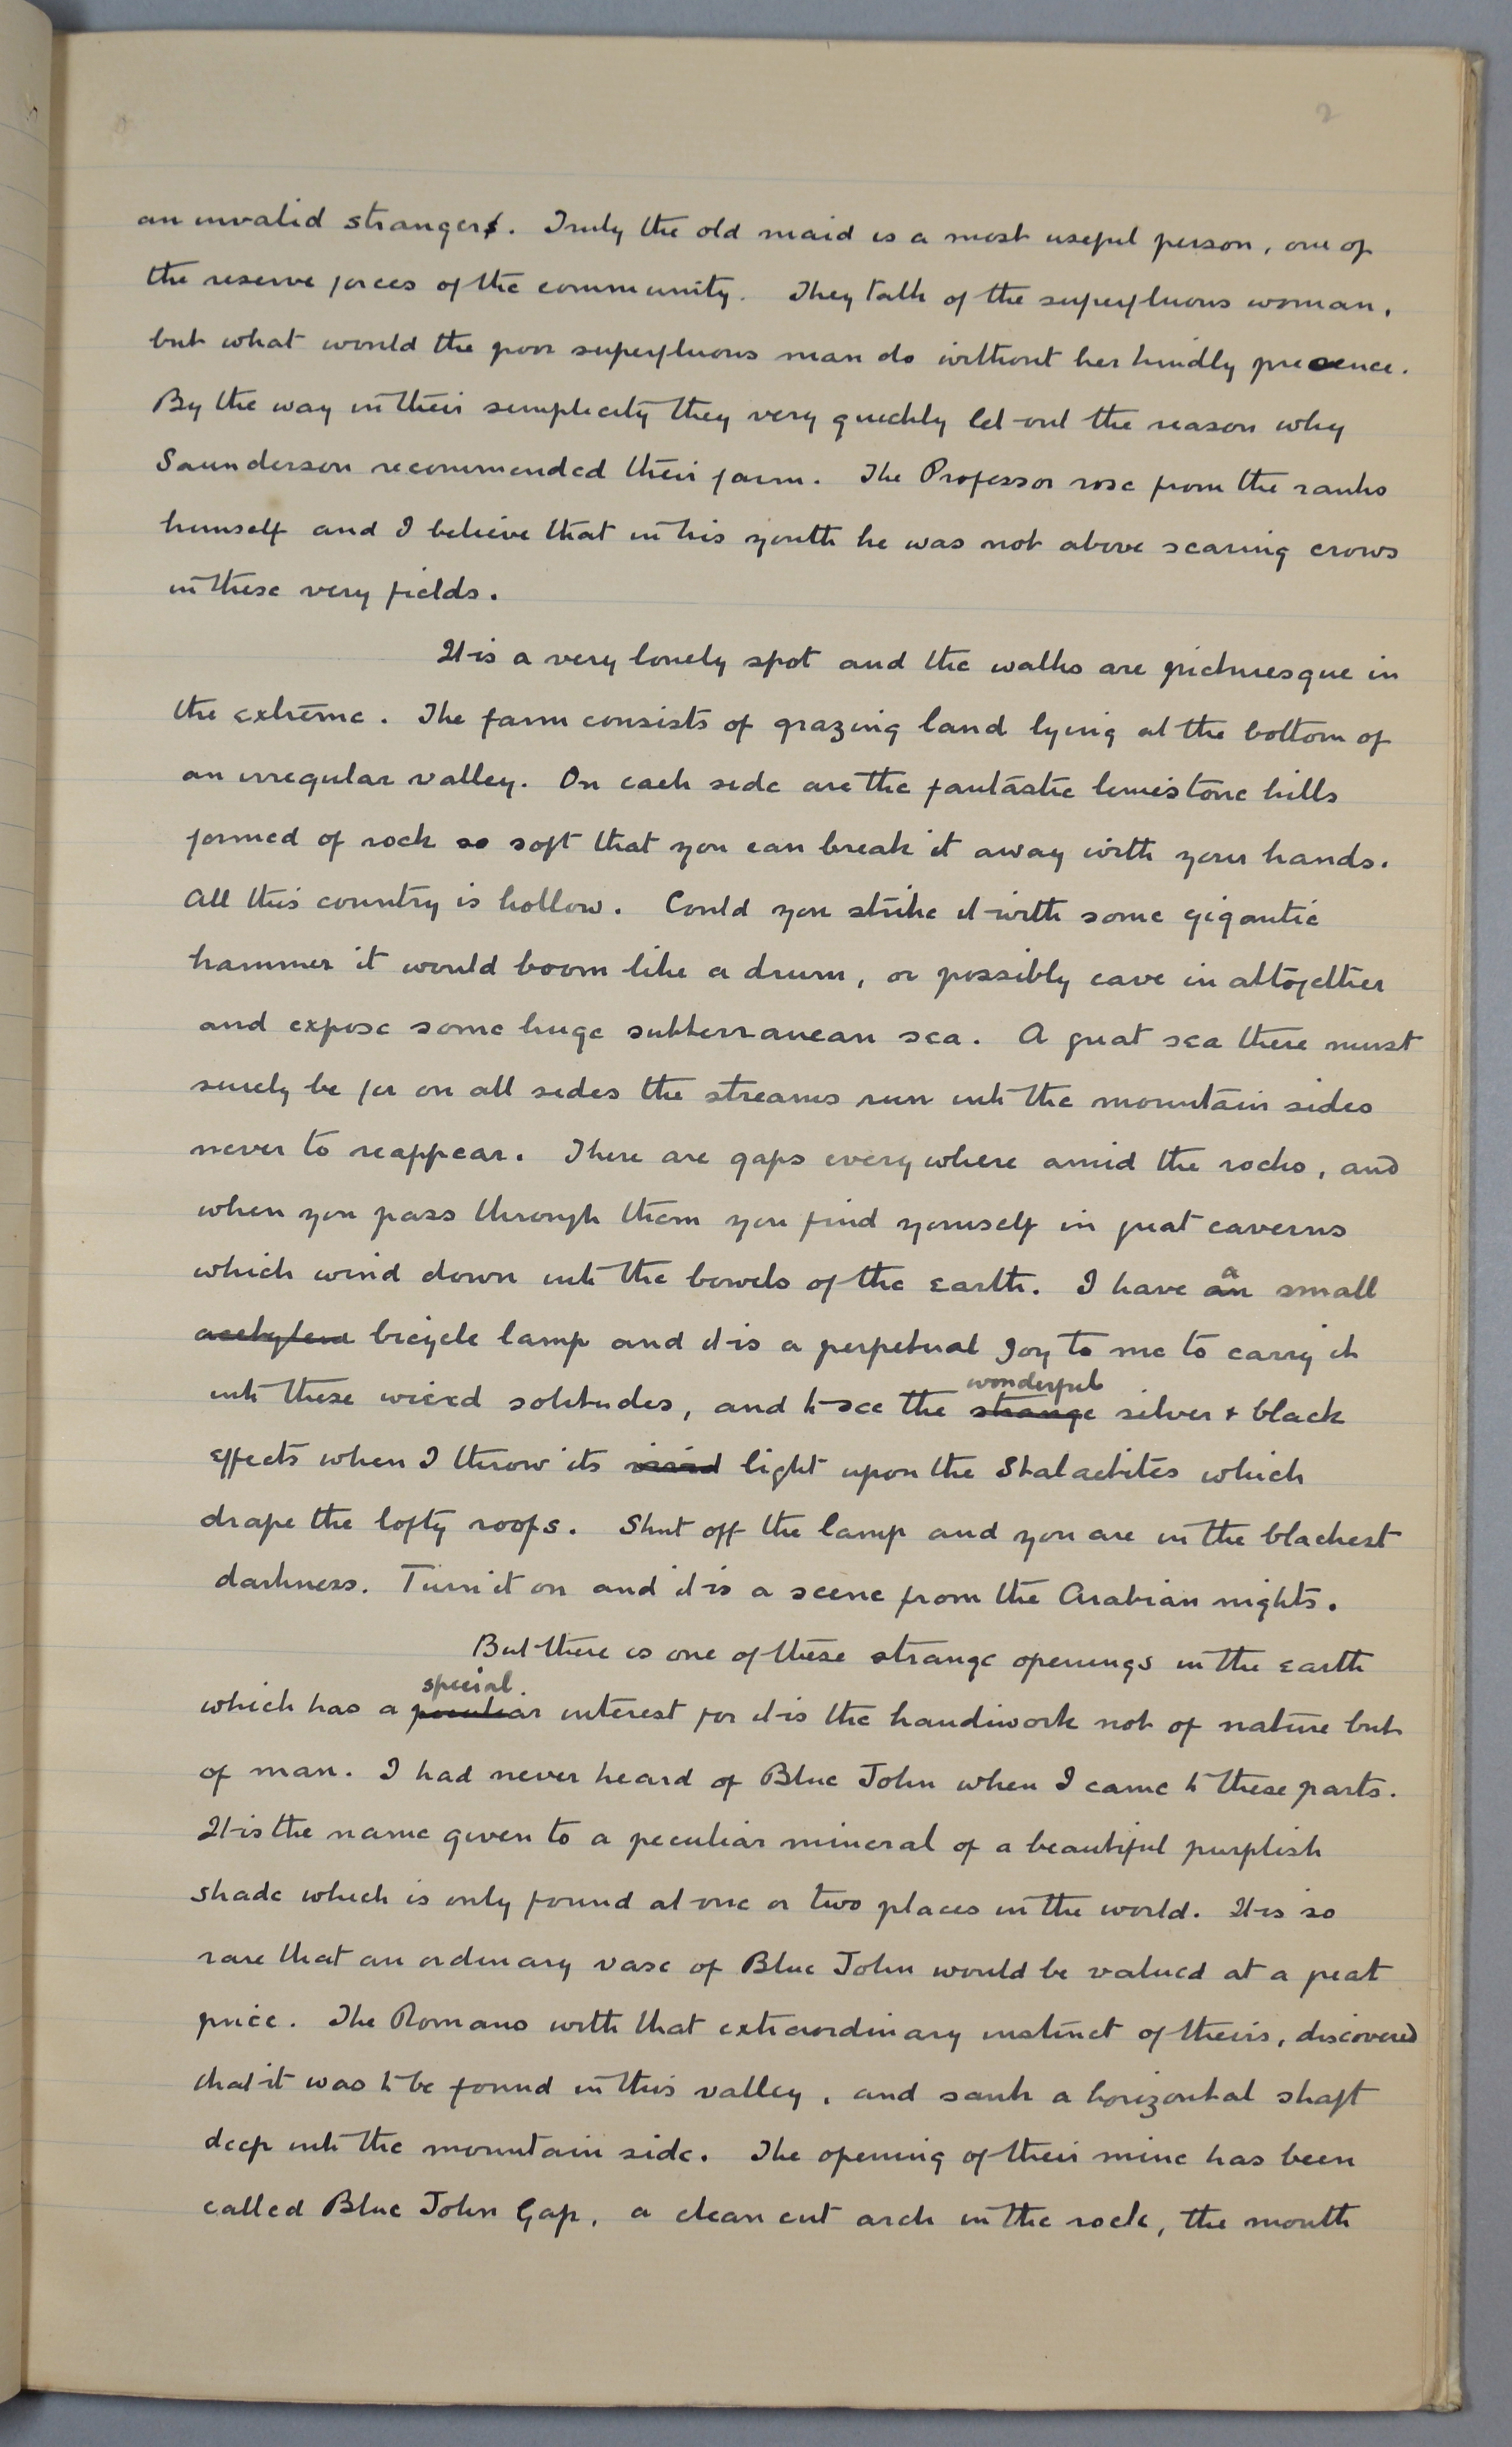 2
an invalid stranger. Truly the old maid is a most useful person, one of
the reserve forces of the community. They talk of the superfluous woman,
but what would the poor superfluous man do without her kindly presence.
By the way in their simplicity they very quickly let out the reason why
Saunderson recommended their farm. The Professor rose from the ranks
himself and I believe that in his youth he was not above scaring crows
in these very fields.
It is a very lonely spot and the walks are picturesque in
the extreme. The farm consists of grazing land lying at the bottom of
an irregular valley. On each side are the fantastic limestone hills
formed of rock so soft that you can break it away with your hands.
All this country is hollow. Could you strike it with some gigantic
hammer it would boom like a drum, or possibly cave in altogether
and expose some huge subterranean sea. A great sea there must
surely be for on all sides the streams run into the mountain sides
never to reappear. There are gaps everywhere amid the rocks, and
when you pass through them you find yourself in great caverns
which wind down into the bowels of the earth. I have an a small
acetylene bicycle lamp and it is a perpetual joy to me to carry it
into these wierd solitudes, and to see the strange wonderful silver + black
effects when I throw its vivid light upon the Stalactites which
drape the lofty roofs. Shut off the lamp and you are in the blackest
darkness. Turn it on and it is a scene from the Arabian nights.
But there is one of these strange openings in the earth
which has a peculiar special interest for it is the handiwork not of nature but
of man. I had never heard of Blue John when I came to these parts.
It is the name given to a peculiar mineral of a beautiful purplish
shade which is only found at one or two places in the world. It is so
rare that an ordinary vase of Blue John would be valued at a great
price. The Romans with that extraordinary instinct of theirs, discovered
that it was to be found in this valley, and sank a horizontal shaft
deep into the mountain side. The opening of their mine has been
called Blue John Gap, a clean cut arch in the rock, the mouth